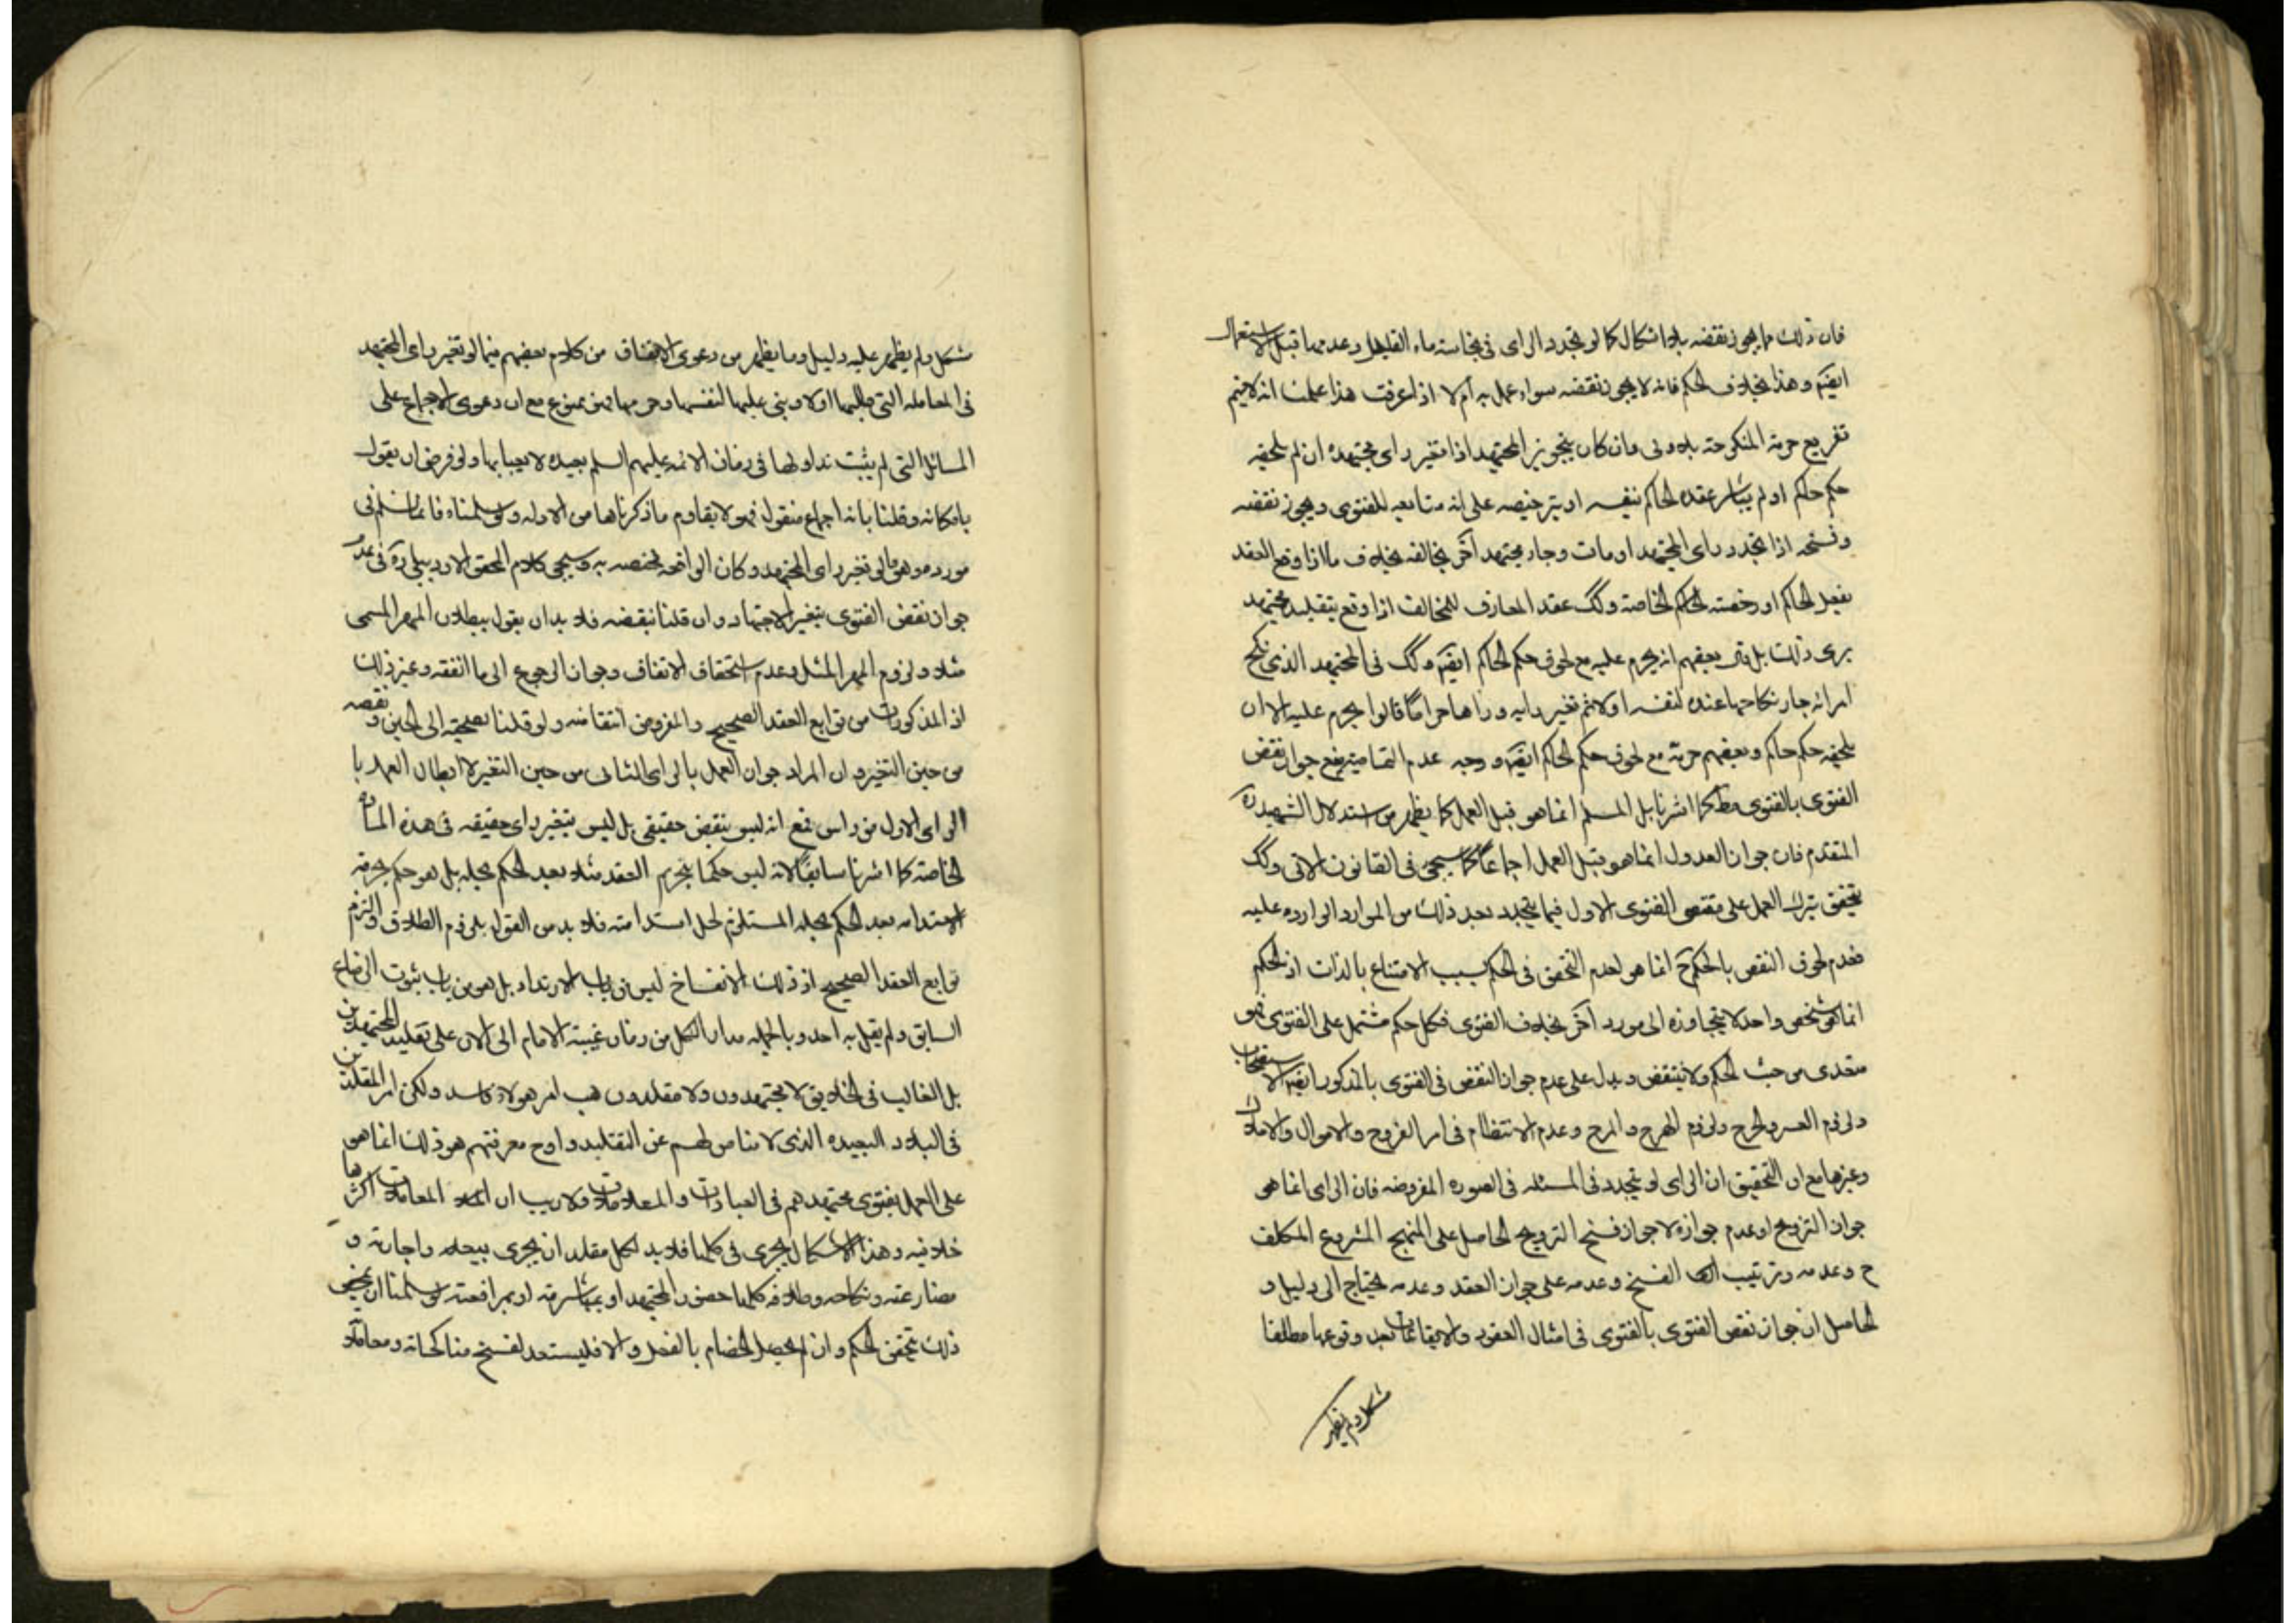 فان ذلك مما يجوز نقضه بلا اشكال كما لو تجدد الراى فى نجاسته ماء القليل وعدمها قبل الاستعمال
ايضم وهذا بخلاف الحكم فانه لا يجوز نقضه سواء عمل به ام لا اذا عرفت هذا علمت انه لا يتم
تفريع حرمة المنكوحة بلا ولى وان كان بتجويز المجتهد اذا تغير راى مجتهده ان لم يلحقه
حكم حاكم او لم يباشر عقده الحاكم بنفسه او بترخيصه على انه متابعه للفتوى ويجوز نقضه
وفسخه اذا تجدد راى المجتهد او مات وجاء مجتهد آخر يخالفه بخلاف ما اذا وقع العقد
بفعل الحاكم او رخصته الحاكم الخاصة وكك عقد المعارف للمخالف اذا وقع بتقليد مجتهد
يرى ذلك بل بعضهم انه يحرم عليه مع لحوق حكم الحاكم ايضم وكك فى المجتهد الذى نكح
امراة جاز نكاحها عنده لنفسه اولا ثم تغير رايه وراها حراما قالوا يحرم عليه الا ان
يلحقه حكم حاكم وبعضهم حرمه مع لحوق حكم الحاكم ايضم ووجه عدم التمامية منع جواز نقض
الفتوى بالفتوى مط كما اشرنا بل المسلم انما هو قبل العمل كما يظهر من استدلال الشهيد ره
المتقدم فان جواز العدول انما هو قبل العمل اجماعا كما سيجئ فى القانون الاتى وكك
يتحقق بترك العمل على مقتضى الفتوى الاول فيما يتجدد بعد ذلك من الموارد الوارده عليه
فعدم لحوق النقض بالحكم ح انما هو لعدم التحقق فى الحكم بسبب الامتناع بالذات اذ الحكم
انما هو شخص واحد لا يتجاوزه الى مورد آخر بخلاف الفتوى فكل حكم مشتمل على الفتوى فهو
متعدى من حيث الحكم ولا ينتقض ويدل على عدم جواز النقض فى الفتوى بالمذكور ايضم الاستصحاب
ولزوم العسر والحرج ولزوم الهرج والمرج وعدم الانتظام فى امر الفروج والاموال والاملاك
وغيرها مع ان التحقيق ان الراى لو يتجدد فى المسئله فى الصوره المفروضه فان الراى انما هو
جواز التزويج او عدم جوازه لا جواز فسخ التزويج الحاصل على المنهج المشروع المكلف
ح وعدمه وترتيب الفسخ وعدمه على جواز العقد وعدمه يحتاج الى دليل و
الحاصل ان جواز نقض الفتوى بالفتوى فى امثال العقود والايقاعات بعد وقوعها مطلقا
مشكل ولم يظهر
مشكل ولم يظهر عليه دليل وما يظهر من دعوى الاتفاق من كلام بعضهم فيما لو تغير راى المجتهد
فى المعامله التى اولا وبنى عليها لنفسه وحرمها فمن ممنوع مع ان دعوى الاجماع على
المسائل التى لم يثبت تداولها فى زمان الائمه عليهم السلم بعيده لا يعبا بها ولو فرض ان يقول
بامكانه وقلنا بانه اجماع منقول فهو لا يقاوم ما ذكرناها من الادله ولو سلمناه فانما نسلم فى
مورده وهو ما لو تغير راى المجتهد وكان الواقعه مختصه به وسيجئ كلام المحقق الاردبيلى ره فى عدم
جواز نقض الفتوى بتغير الاجتهاد وان قلنا بنقضه فلا بد ان يقول ببطلان المهر المسمى
مثلا ولزوم المهر المثل وعدم استحقاق الانفاق وجواز الرجوع الى ما انفقه وغير ذلك
اذ المذكورات من توابع العقد الصحيح والمفروض انتقاضه ولو قلنا بصحته الى الحين ونقضه
من حين التغير وان المراد جواز العمل بالراى الثانى من حين التغير لا ابطال العمل با
الراى الاول من راس فمع انه ليس بنقض حقيقى بل ليس بتغير راى حقيقه فى هذه المسألة
الخاصة كما اشرنا سابقا لانه ليس حكما بتحريم العقد مثلا بعد الحكم بحله بل هو حكم بحرمه
الاستدامه بعد الحكم بحله المستلزم لحل استدامته فلا بد من القول بلزوم الطلاق والتزم
توابع العقد الصحيح اذ ذلك الانفساخ ليس من باب الارتداد بل هو من باب ثبوت الرضاع
السابق ولم يقل به احد وبالجمله مدار الكل من زمان غيبة الامام الى الان على تقليد المجتهدين
بل الغالب فى الخلايق لا مجتهدون ولا مقلدون هب امر هولاء فاسد ولكن امر المقلدين
فى البلاد البعيده الذى لا مناص لهم عن التقليد واوج معرفتهم هو ذلك انما هو
على العمل بفتوى مجتهدهم فى العبادات والمعاملات ولا ريب ان المعاملات اكثرها
خلافيه وهذا الاشكال يجرى فى كلها فلا بد لكل مقلد ان يجرى بيعه واجارته و
مضارعته ونكاحه وطلاقه كلها حضور المجتهد او بمباشرته او بمرافعته ولو سلمنا ان بمحض
ذلك يتحقق الحكم وان لم يحصل الخصام بالفعل والا فليستعد لفسخ مناكحاته ومعاملاته